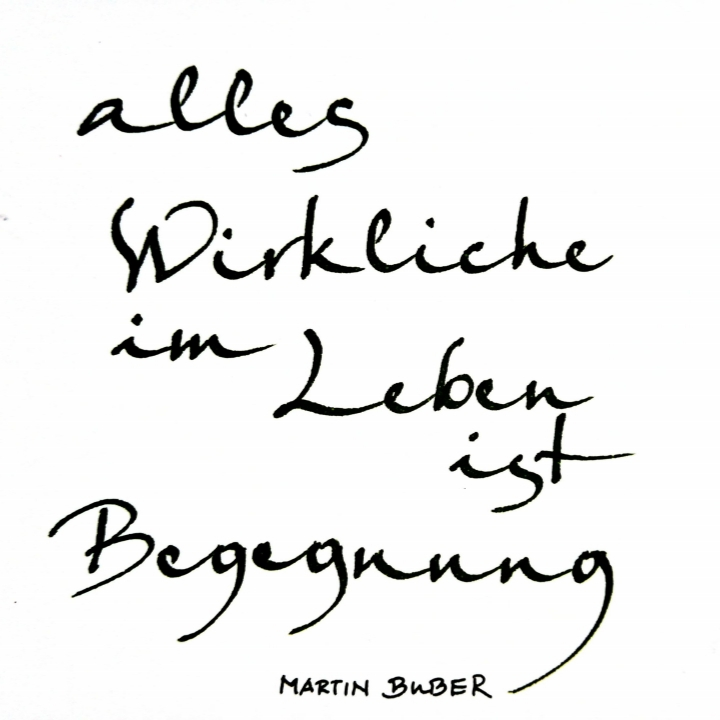 alles
Wirkliche
im Leben
ist
Begegnung
MARTIN BUBER